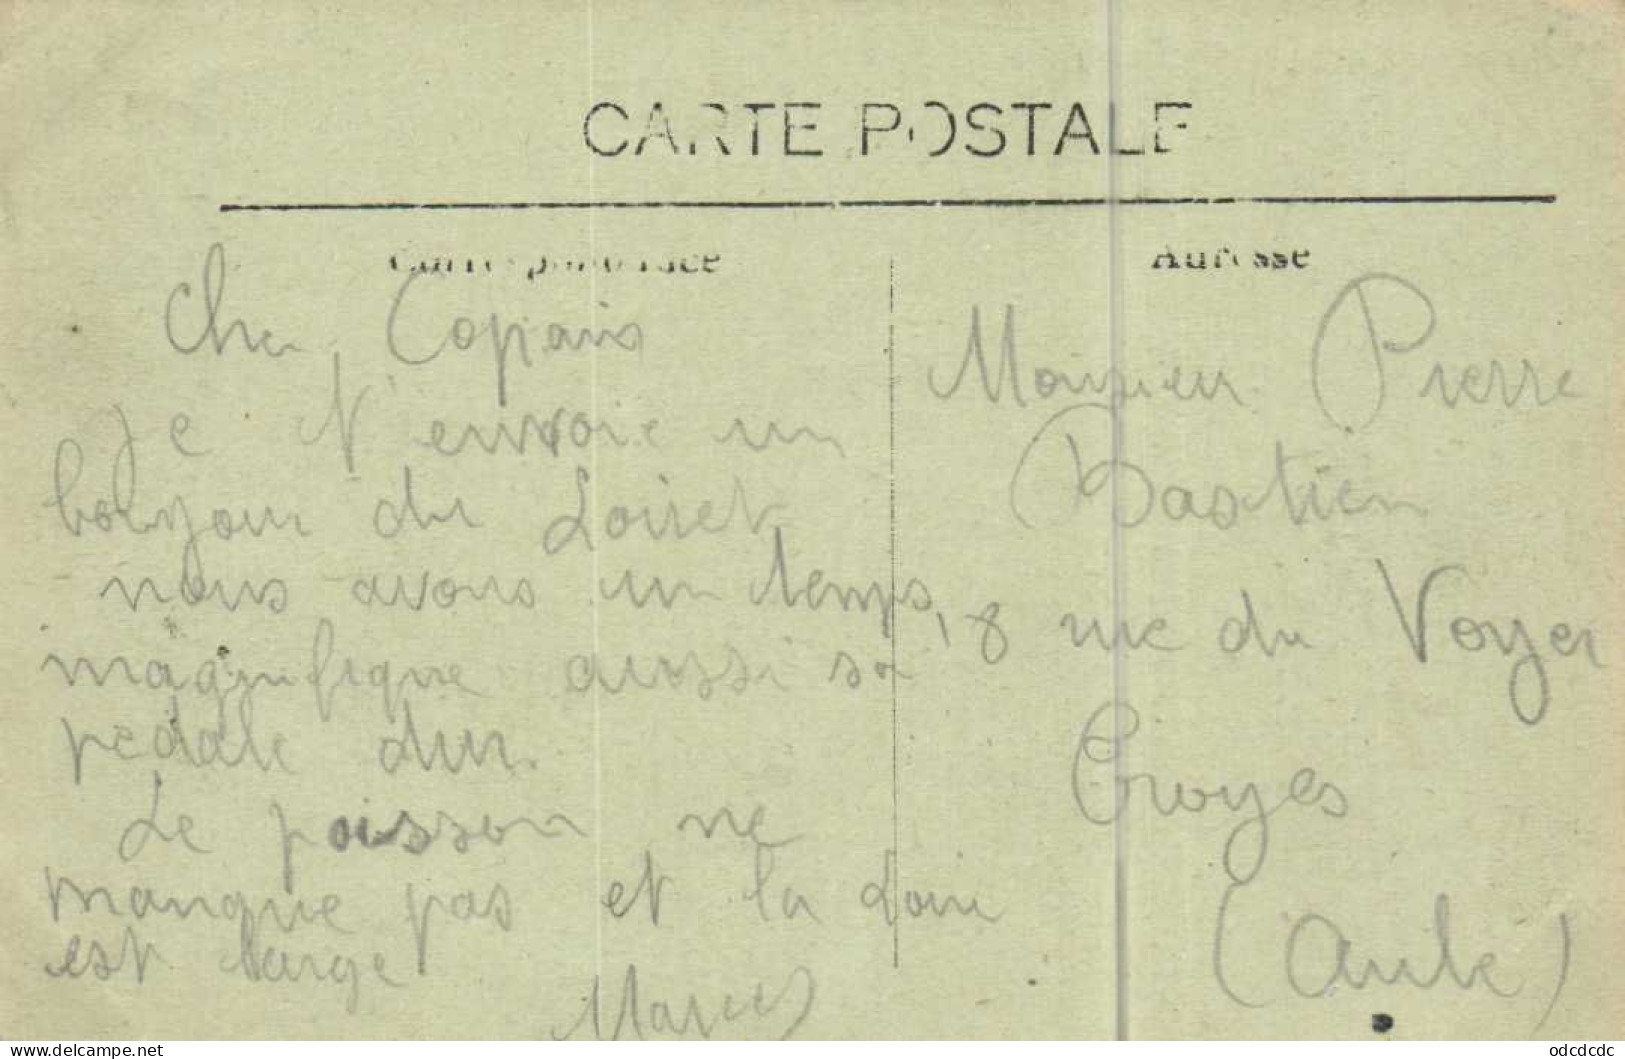 CARTE POSTALE
Correspondance
Adresse
Cher Copain
Je t'envoie un
bonjour du Loiret
nous avons un temps
magnifique aussi sa
pedale dur.
Le poisson ne
manque pas et la Loire
est large
Marcel
Monsieur Pierre
Bastien
18 rue du Voyer
Troyes
(Aube)
odcdcdc